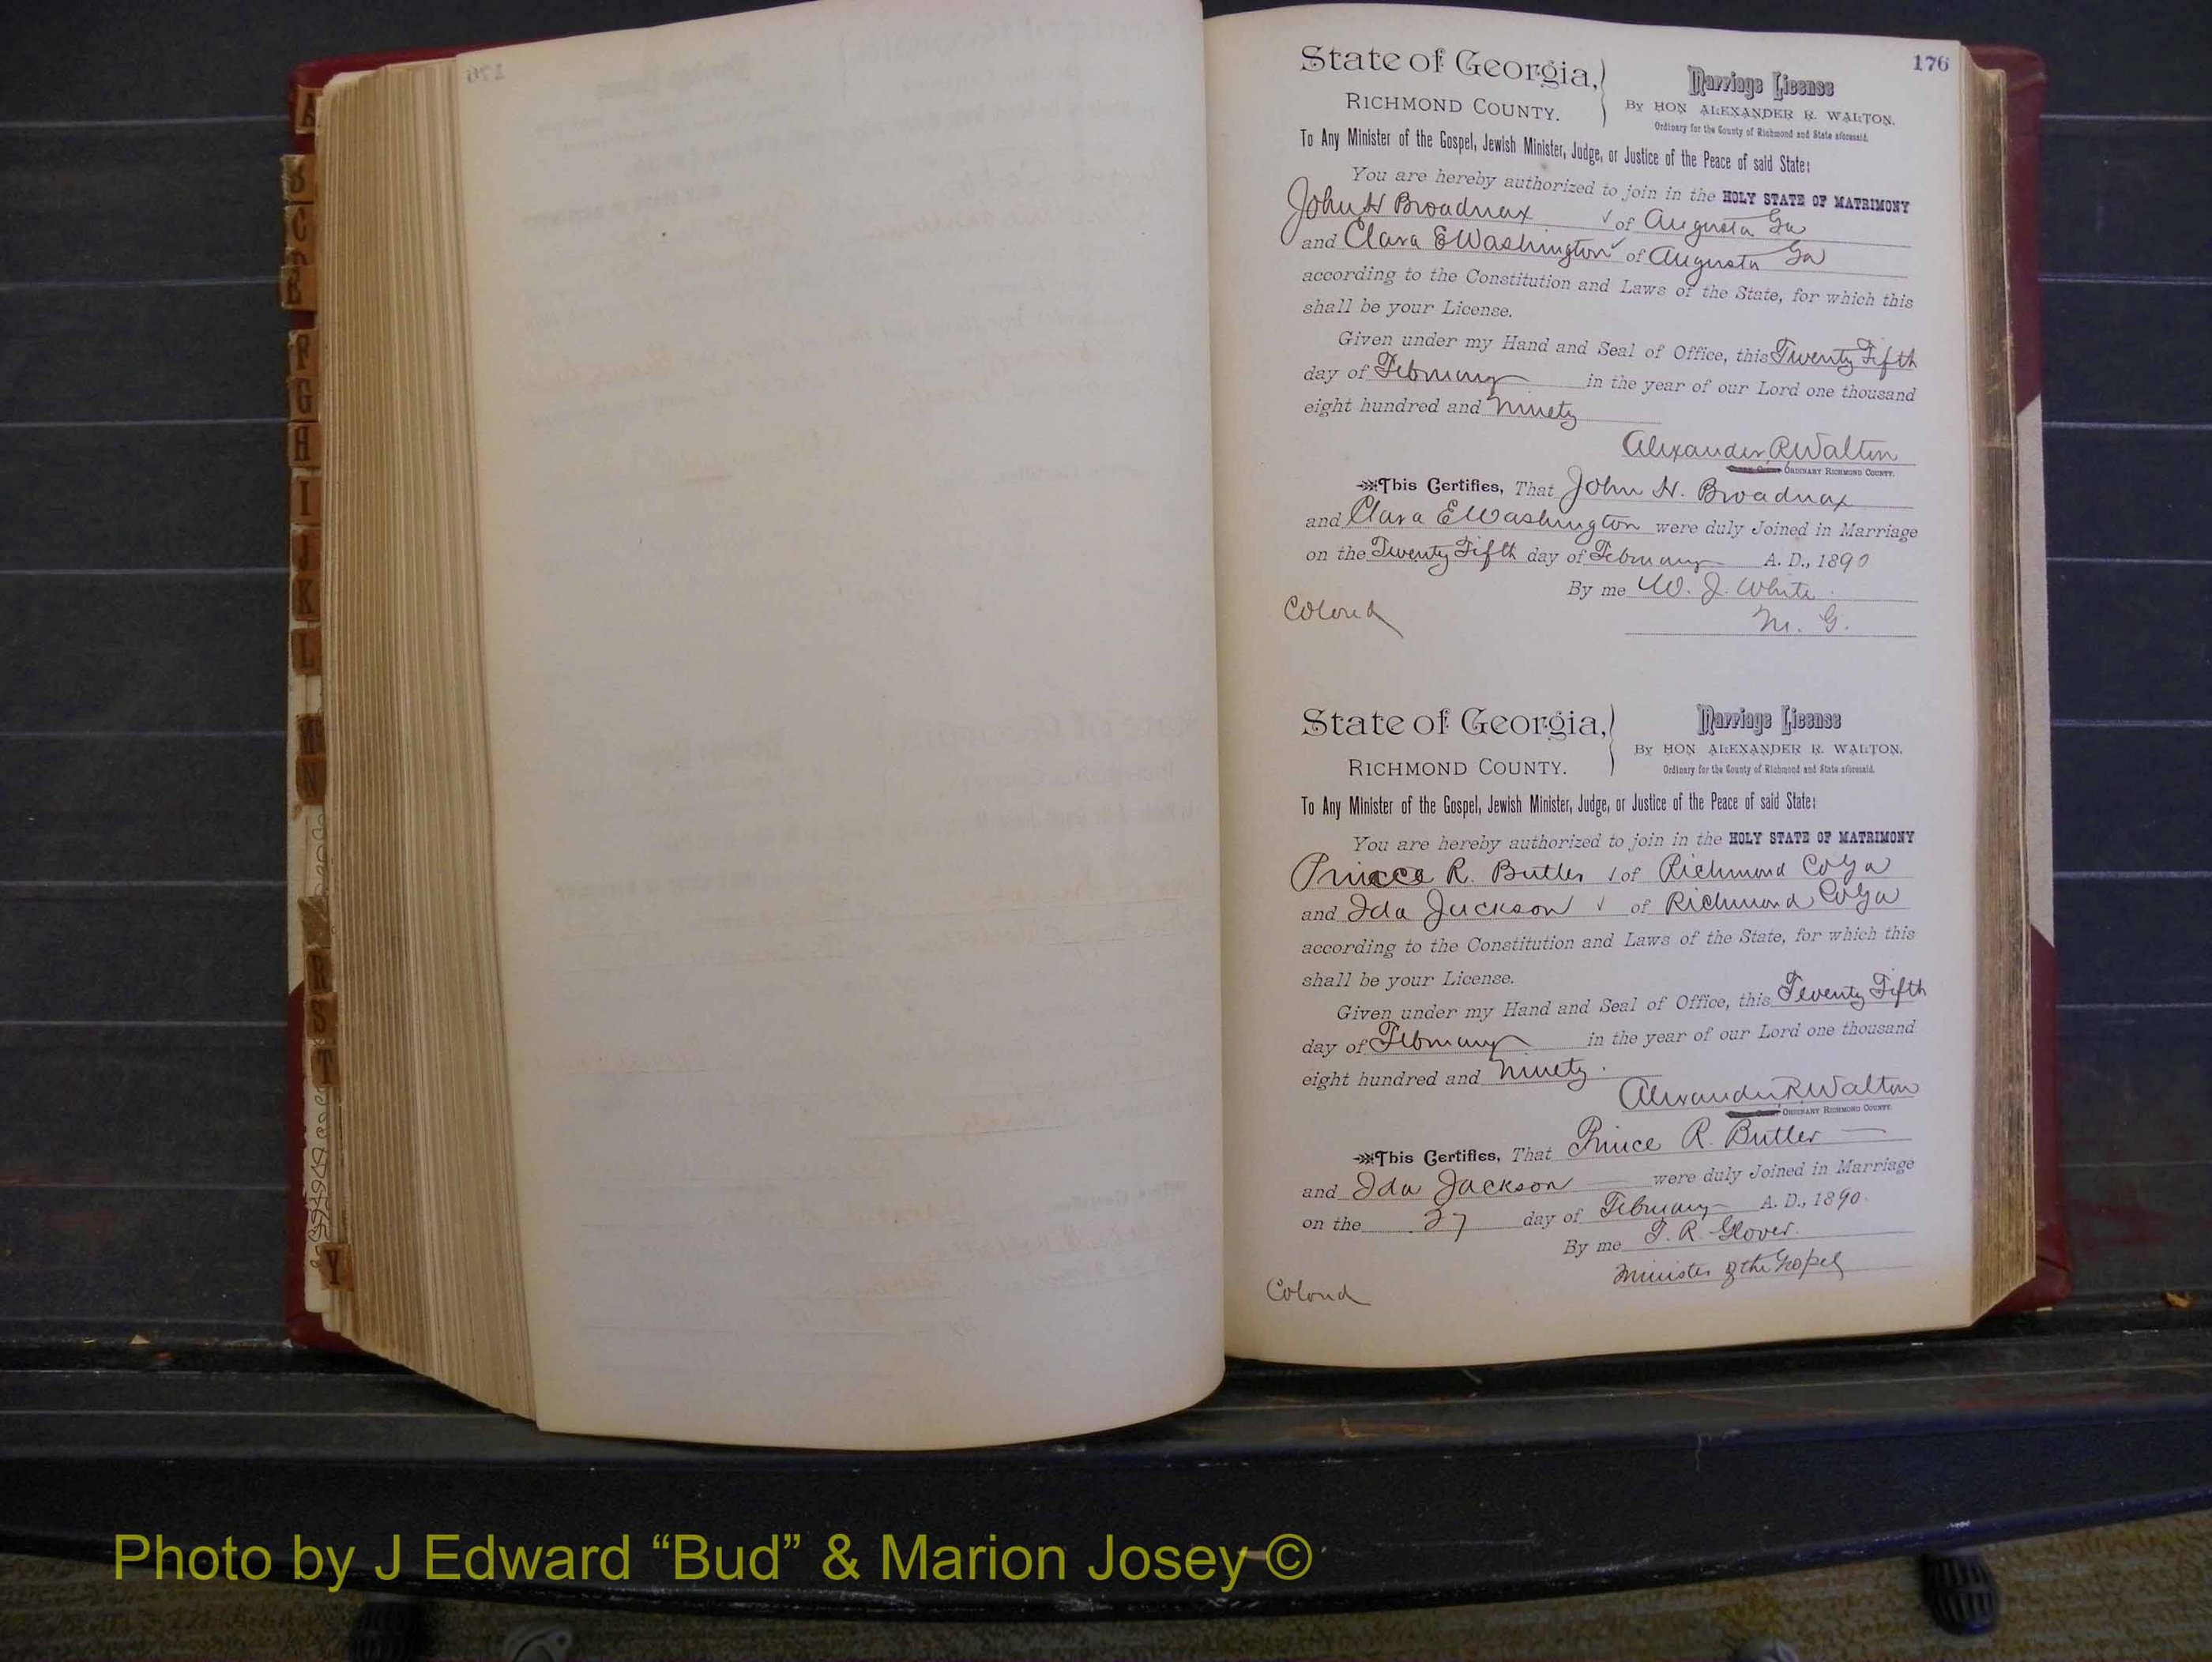 176
State of Georgia,
RICHMOND COUNTY.
Marriage License
By HON ALEXANDER R. WALTON.
Ordinary for the County of Richmond and State aforesaid.
To Any Minister of the Gospel, Jewish Minister, Judge, or Justice of the Peace of said State:
You are hereby authorized to join in the HOLY STATE OF MATRIMONY
John H Broadnax ✓ of Augusta Ga
and Clara E Washington ✓ of Augusta Ga
according to the Constitution and Laws of the State, for which this
shall be your License.
Given under my Hand and Seal of Office, this Twenty Fifth
day of February in the year of our Lord one thousand
eight hundred and Ninety
Alexander R Walton
ORDINARY RICHMOND COUNTY.
This Certifies, That John H. Broadnax
and Clara E Washington were duly Joined in Marriage
on the Twenty Fifth day of February A. D., 1890
By me W. J. White
M. G.
Colored
State of Georgia,
RICHMOND COUNTY.
Marriage License
By HON ALEXANDER R. WALTON.
Ordinary for the County of Richmond and State aforesaid.
To Any Minister of the Gospel, Jewish Minister, Judge, or Justice of the Peace of said State:
You are hereby authorized to join in the HOLY STATE OF MATRIMONY
Prince R. Butler ✓ of Richmond Co Ga
and Ida Jackson ✓ of Richmond Co Ga
according to the Constitution and Laws of the State, for which this
shall be your License.
Given under my Hand and Seal of Office, this Twenty Fifth
day of February in the year of our Lord one thousand
eight hundred and Ninety.
Alexander R Walton
ORDINARY RICHMOND COUNTY.
This Certifies, That Prince R. Butler
and Ida Jackson were duly Joined in Marriage
on the 27 day of February A. D., 1890.
By me T. R. Glover.
Minister of the Gospel
Colored
A
B
C
E
F
G
H
I
J
K
L
M
N
R
S
T
Y
Photo by J Edward “Bud” & Marion Josey ©